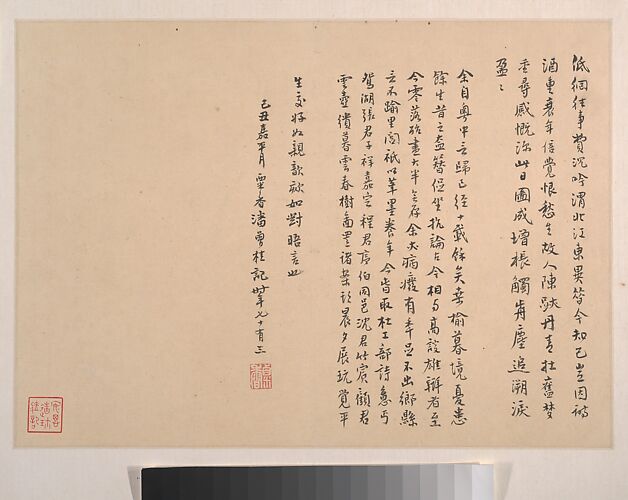 低徊往事費沉吟渭北江東異等今知己豈因詩
酒重衰年倍覺恨愁生故人陳跡丹青在舊夢
重尋感慨深此日圖成增悵觸前塵追溯淚
盈〻
余自粵中言歸已經十載餘矣桑榆暮境憂患
餘生昔之盍簪促坐抗論古今相與高談雄辯者至
今零落殆盡大半無存余病癃有年足不出鄉縣
言不踰里閭祇以筆墨養年今取杜工部詩意丐
鴛湖張君子祥嘉定程君序伯同邑沈君竹賓顧君
雲壺繪暮雲春樹圖置諸案頭晨夕展玩覺平
生交好如親謦欬如對晤言也
己丑嘉平月栗香潘曾桂記時年七十有三